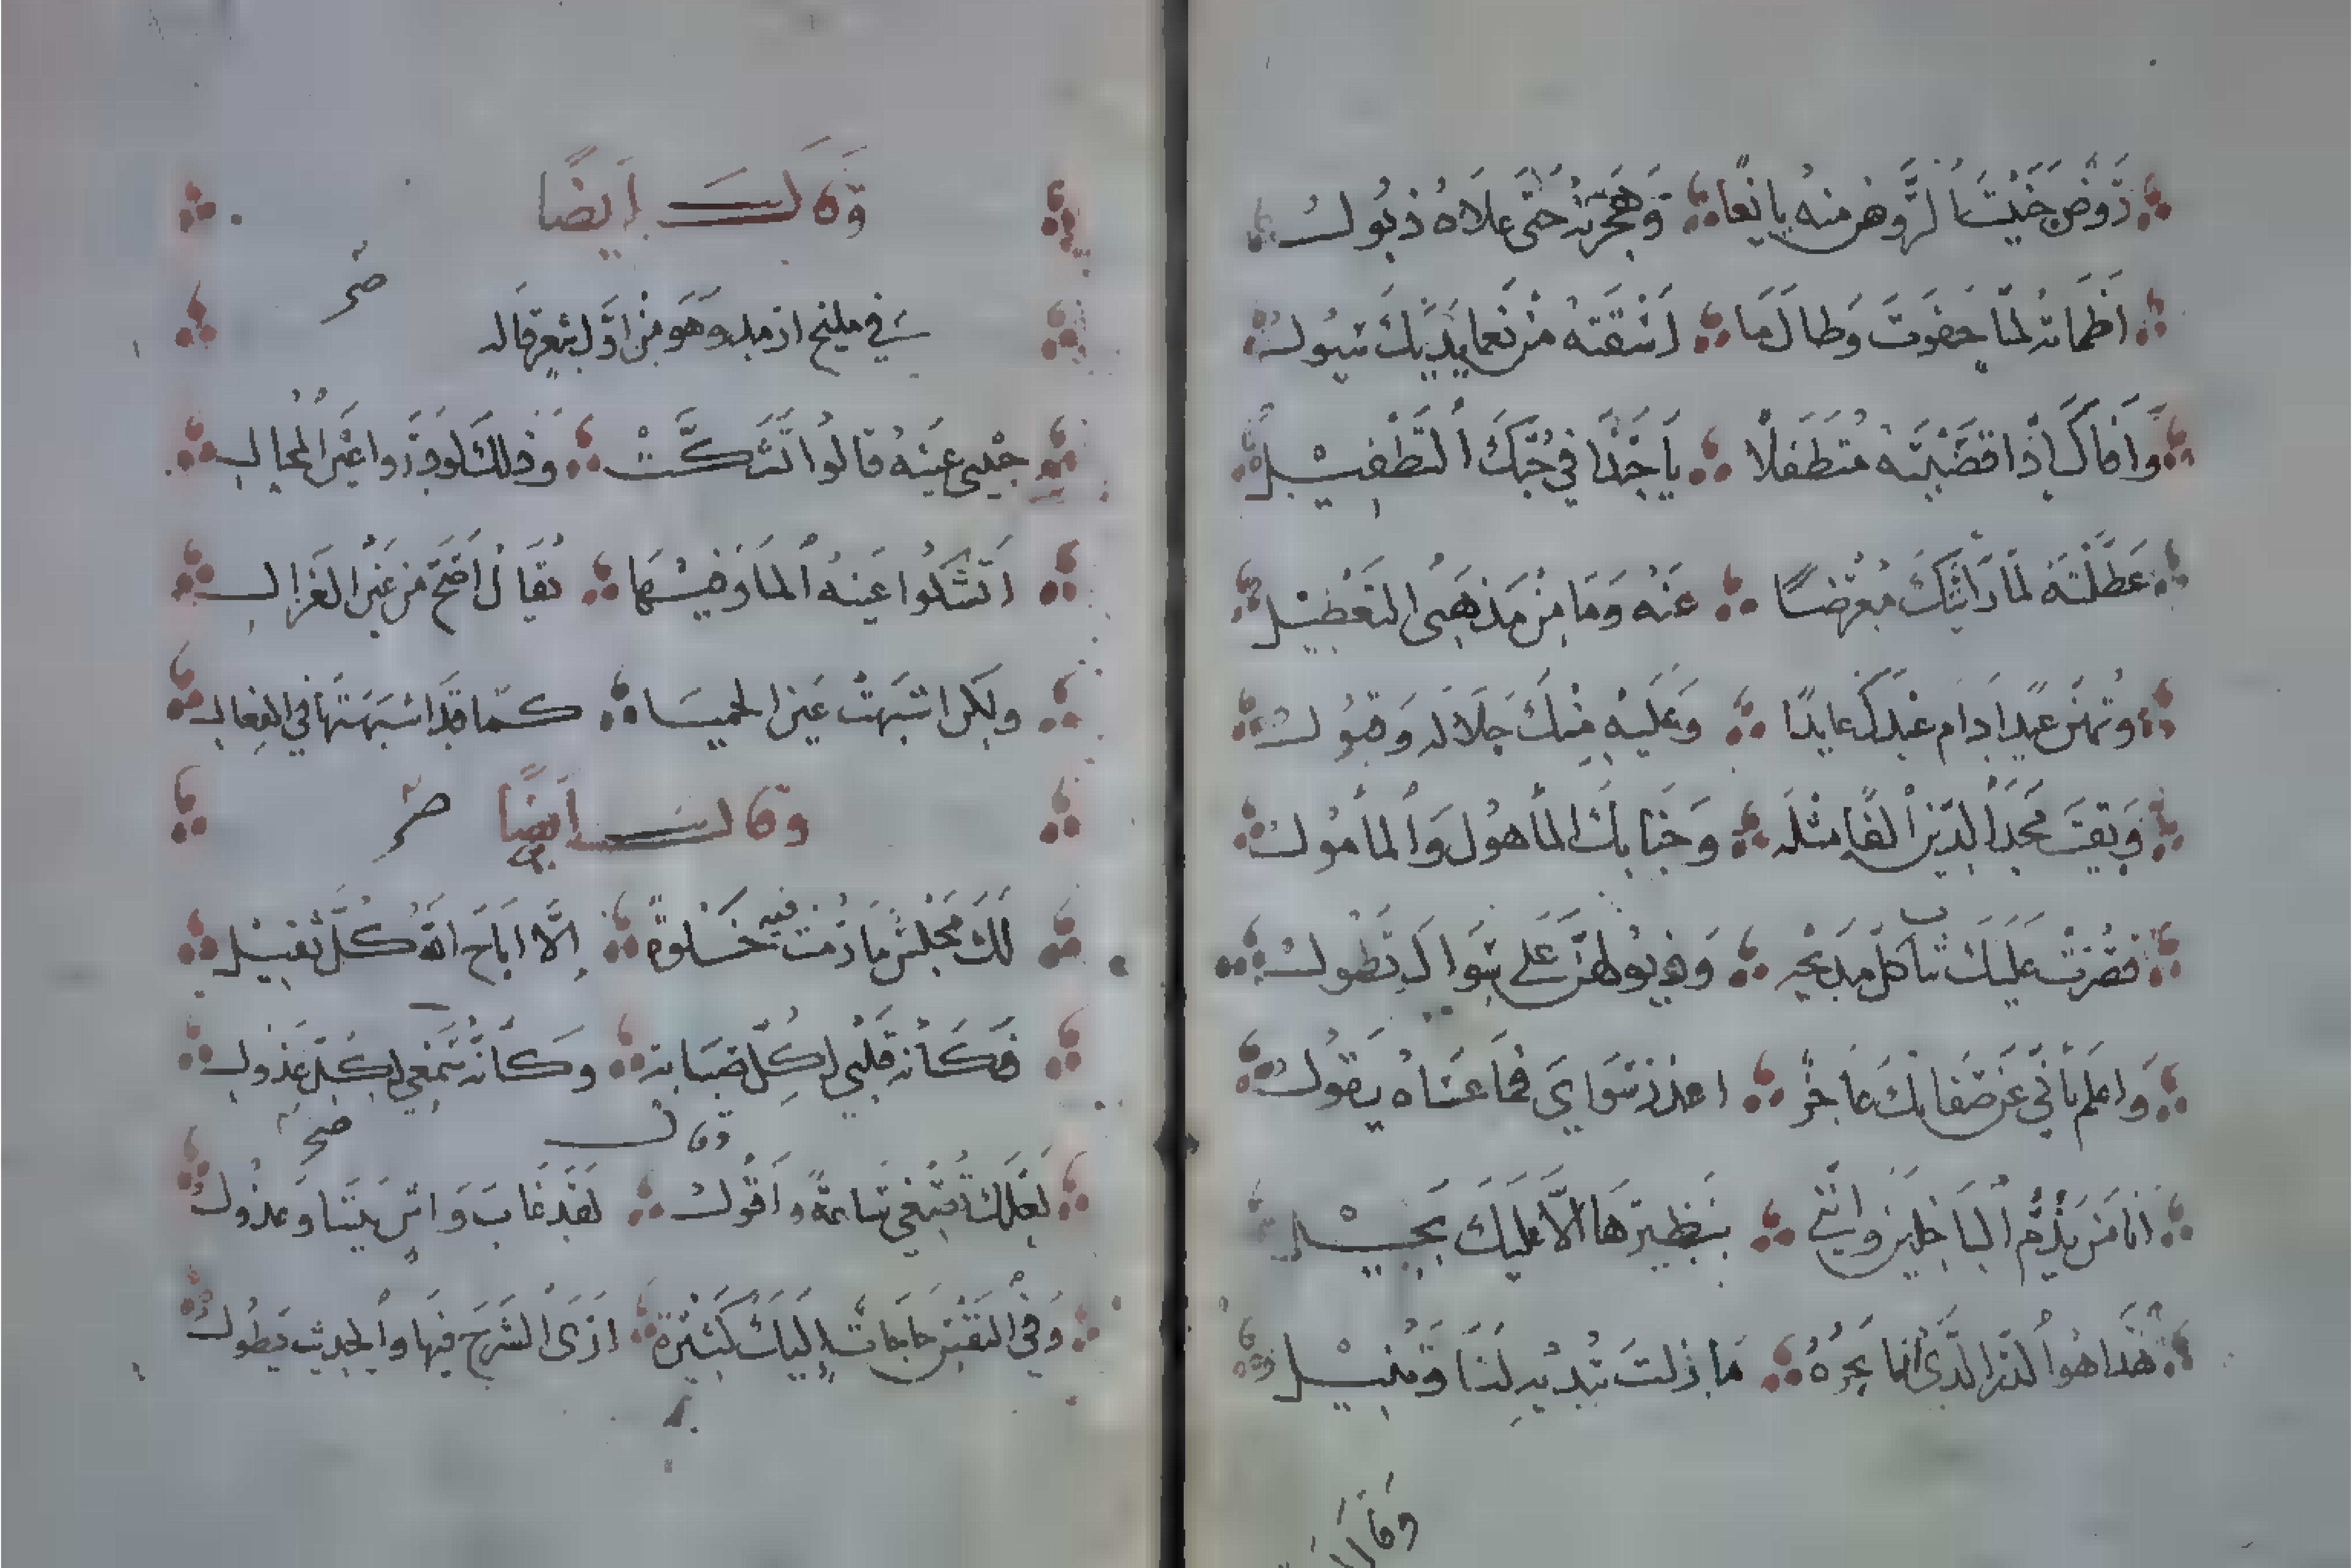 رَوْضٌ جَنَيْتَ الزَّهْرَ مِنْهُ يَانِعًا وَهَجَرْتَهُ حَتَّى عَلَاهُ ذُبُولُ
اظماته لمّا جفوتَ وَطالَما اَسْقَتْهُ مِنْ نعما يَدَيكَ سيُولُ
وَافاكَ اِذ اقصَيْتَهُ مُتَطَفلًا يَا حَبَّذَا فِي حُبِّكَ التَّطْفِيْلُ
عَطَّلْتَهُ لمّا رَاَيْتُكَ مُعْرِضًا عَنْهُ وَمَا مِنْ مَذهَبِي التَعْطِيْلُ
وتهنّ عيدًا دَامَ عيدكَ عايدًا وَعَلَيْهِ مِنكَ جَلالة وَقبُولُ
وَبَقيتَ مَجْدَ الدّينِ الفًا مثلَه وَجَنابكَ المأهُول وَالمأمُولُ
قصُرَت عَلَيكَ ثيابُ كلّ مديحة وَ عَلى سِوَاكَ تَطُولُ
وَاعلَم بأنّي عَن صِفَاتِكَ عَاجِزٌ اعذر سِوَايَ فمَا عسَاهُ يقُولُ
اَنَا مَن يَذُمُّ البَاخِلِينَ وَاِنَّنِي بِنَظِيرَهَا اِلّا عَلَيكَ بَخِيْلُ
هَذا هُوَ الدُّرُّ الّذي مِا بحرُهُ مَا زلتَ تُبْديهِ لَنَا وَتُنِيْلُ
وَقالَ
وَقَالَ اَيضًا
في مليح ارمد وهوَ مِن اوّل شعر قاله
حَبيبي عَينهُ قالوا تَشَكَّتْ وَذلكَ لو دَروا عَيْنُ المحالِ
اَتَشكوا عَينهُ المًا وَفِيهَا يُقَالُ اَصَحّ مِن عَيْنِ الغزالِ
ولكن اشبَهَتْ عَين الحميّا كَما قد اشبَهَتهَا في الفِعَالِ
وقال اَيضًا
لَكَ مَجْلسٌ مَا رُمْتُ فيهِ خَلْوةً اِلَّا اَتَاحَ اللهُ كُلّ ثقيْلِ
فَكَأنّه قَلْبي لِكُلِّ صَبَابة وَكَأنّه سَمْعي لِكُلِّ عَذولِ
وقال
لَعَلّكَ تُصْغي سَاعَةً وَاَقُولُ لَقَدْ غَابَ وَاشٍ بَيْنَنا وَعذولُ
وَفي النَفْسِ حَاجَاتٌ اِلَيكَ كَثيْرَةٌ اَرَى الشَرْحَ فيهَا وَالحديث يَطولُ